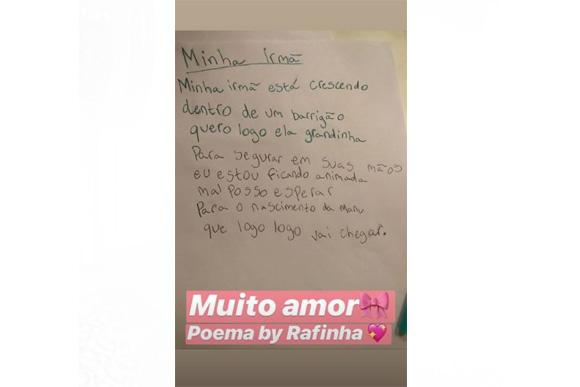 Minha irmã
Minha irmã está crescendo
dentro de um barrigão
quero logo ela grandinha
Para segurar em suas mãos
eu estou ficando animada
mal posso esperar
Para o nascimento da Manu
que logo logo vai chegar.
Muito amor🎀
Poema by Rafinha 💖